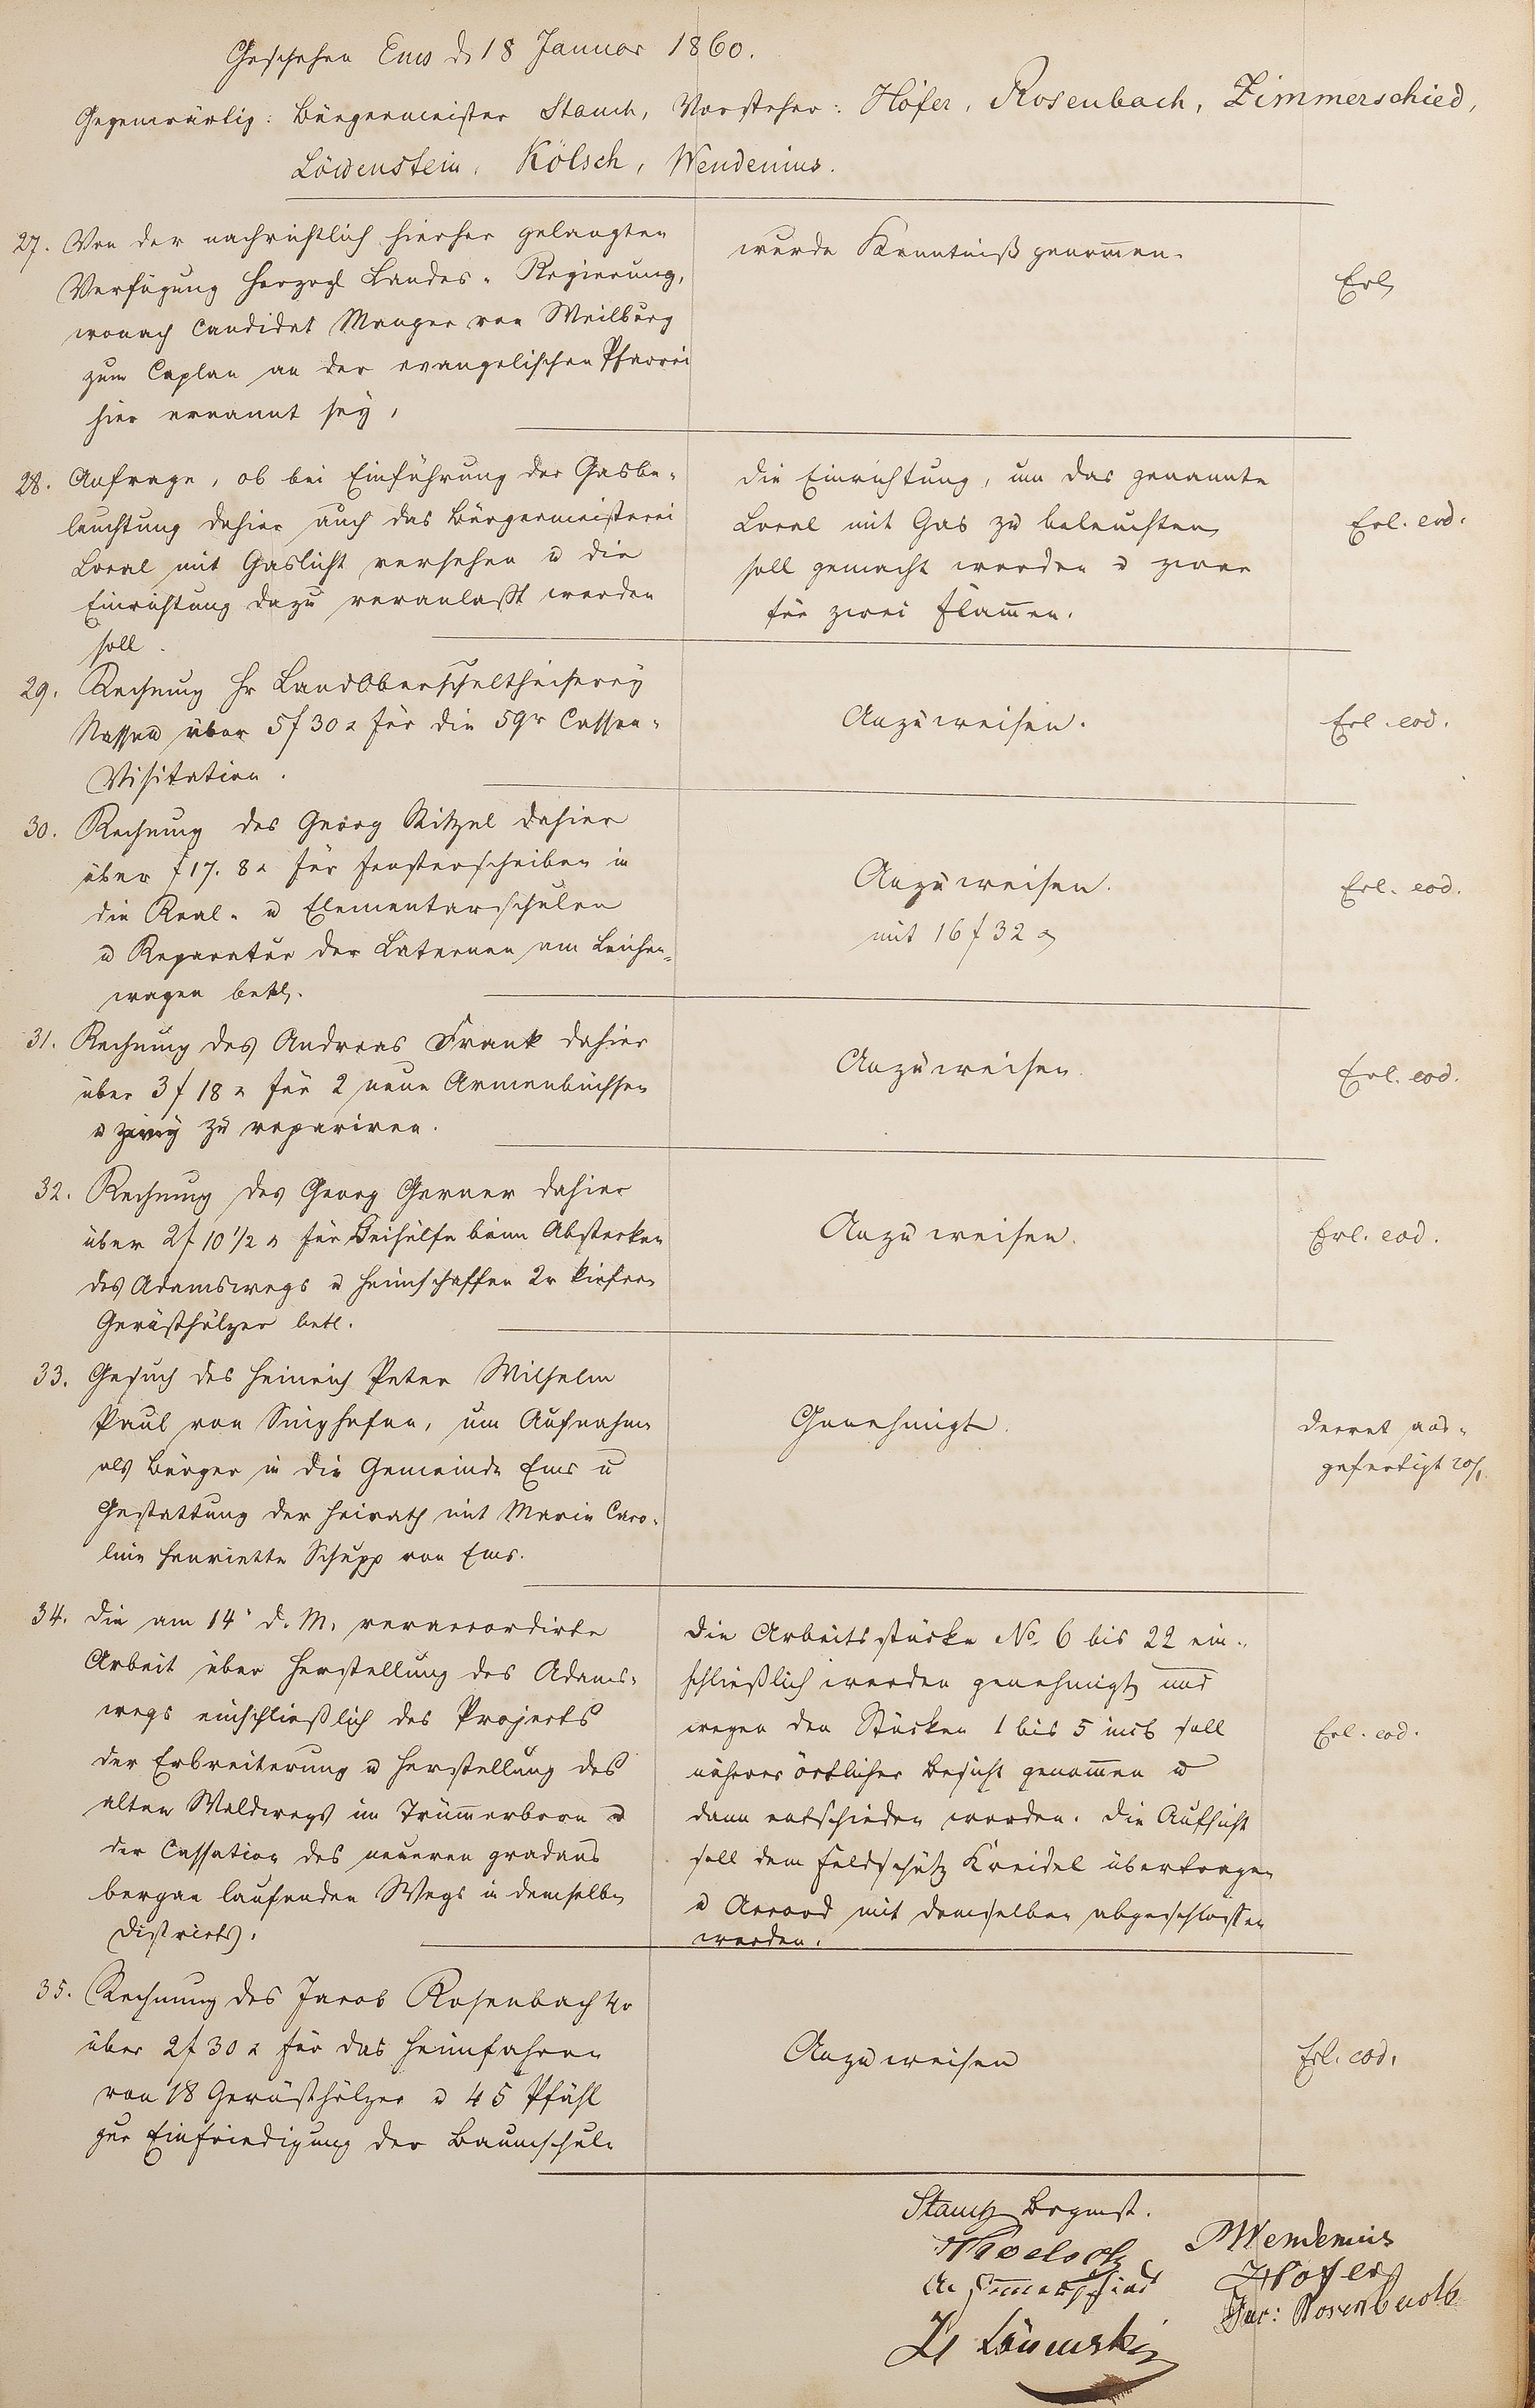 Geschehen Ems d 18 Januar 1860.
Gegenwärtig: Bürgermeister Stauch, Vorsteher: Höfer, Rosenbach, Zimmerschied,
Löwenstein, Kölsch, Wendenius.
27. Von der nachrichtlich hierher gelangten
Verfügung Herzogl Landes-Regierung,
wonach Candidat Manger von Weilburg
zum Caplan an der evangelischen Pfarrei
hier ernannt sey,
wurde Kenntniß genom̅en.
Erl
28. Anfrage, ob bei Einführung der Gasbe-
leuchtung dahier auch das Bürgermeisterei
Local mit Gaslicht versehen u die
Einrichtung dazu veranlaßt werden
soll.
die Einrichtung, um das genannte
Local mit Gas zu beleuchten
soll gemacht werden u zwar
für zwei Flam̅en.
Erl. eod.
29. Rechnung Hr LandOberschultheiserey
Nassau über 5 f 30 x für die 59r Cassen-
Visitation.
Anzuweisen.
Erl. eod.
30. Rechnung des Georg Kitzel dahier
über f 17. 8 x für Fensterscheiben in
die Real- u Elementarschulen
u Reparatur der Laternen am Leichen-
wagen betl.
Anzuweisen.
mit 16 f 32 x
Erl. eod.
31. Rechnung des Andreas Frank dahier
über 3 f 18 x für 2 neue Armenbüchsen
u zwey zu repariren.
Anzuweisen.
Erl. eod.
32. Rechnung des Georg Gerner dahier
über 2 f 10 1/2 x für Beihülfe beim Abstecken
des Adamswegs u Heimschaffen 2r kiefern
Gerüsthölzer betl.
Anzuweisen.
Erl. eod.
33. Gesuch des Heinrich Peter Wilhelm
Paul von Singhofen, um Aufnahme
als Bürger in die Gemeinde Ems u
Gestattung der Heirath mit Marie Caro-
line Henriette Schupp von Ems.
Genehmigt.
Decret aus-
gefertigt 20/1.
34. Die am 14' d. M. veraccordirte
Arbeit über Herstellung des Adams-
wegs einschließlich des Projects
der Erbreiterung u Herstellung des
alten Waldwegs im Trüm̅erborn u
der Cassation des neueren gradaus
bergan laufenden Wegs in demselben
Districts.
Die Arbeitsstücke No. 6 bis 22 ein-
schließlich werden genehmigt und
wegen den Stücken 1 bis 5 incl soll
näherer örtlicher Besicht genom̅en u
dann entschieden werden. Die Aufsicht
soll dem Feldschütz Kreidel übertragen
u Accord mit demselben abgeschlossen
werden.
Erl. eod.
35. Rechnung des Jacob Rosenbach 4r
über 2 f 30 x für das Heimfahren
von 18 Gerüsthölzer u 45 Pfähl
zur Einfriedigung der Baumschule
Anzuweisen
Erl. eod.
Stauch Brgmst.
Koelsch
Wendenius
Zim̅erschied
Höfer
Jac: Rosenbach
Löwenstein